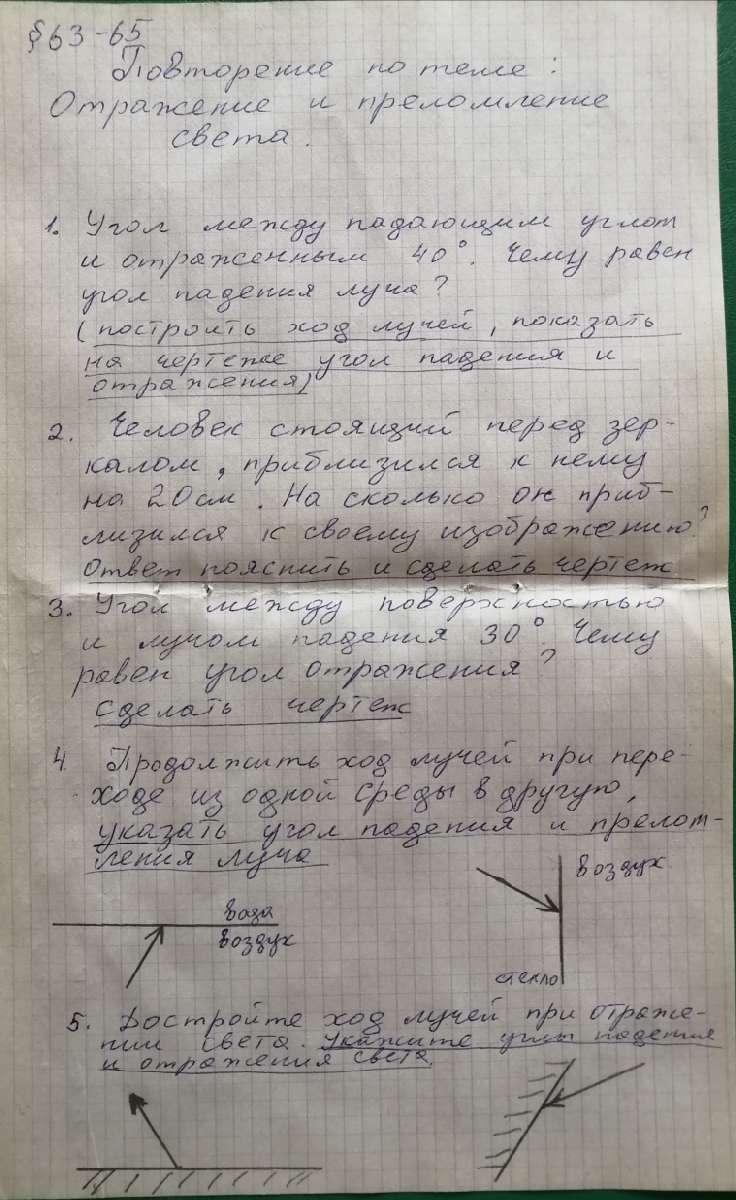 §63-65
Повторение по теме:
Отражение и преломление
света.
1. Угол между падающим углом
и отраженным 40°. Чему равен
угол падения луча?
(построить ход лучей, показать
на чертеже угол падения и
отражения)
2. Человек стоящий перед зер-
калом, приблизился к нему
на 20см. На сколько он приб-
лизился к своему изображению?
Ответ пояснить и сделать чертеж
3. Угол между поверхностью
и лучом падения 30°. Чему
равен угол отражения?
сделать чертеж
4 Продолжить ход лучей при пере-
ходе из одной среды в другую,
указать угол падения и прелом-
ления луча
воздух
вода
воздух
стекло
5. Достройте ход лучей при отраже-
нии света. Укажите углы падения
и отражения света.